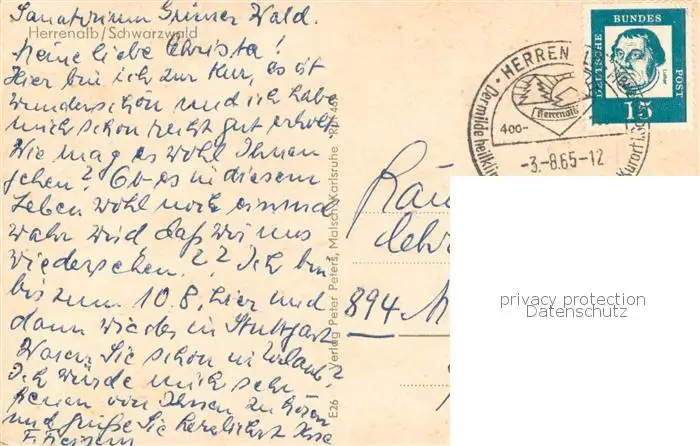 Sanatorium Grüner Wald.
Herrenalb/Schwarzwald
Meine liebe Christa!
Hier bin ich zur Kur, es ist
wunderschön und ich habe
mich schon recht gut erholt.
Wie mag es wohl Ihnen
gehen? Ob es in diesem
Leben wohl noch einmal
wahr wird, daß wir uns
wiedersehen. ?? Ich bin
bis zum 10.8. hier und
dann wieder in Stuttgart
Waren Sie schon in Urlaub?
Ich würde mich sehr
freuen von Ihnen zu hören
und grüße Sie herzlichst Ihre
F.
E26 Verlag Peter Peters, Malsch-Karlsruhe
HERREN
Herrenalb
400-
-3.-8.65-12
Der milde heilklim
Kurort i.
DEUTSCHE
BUNDES
POST
Luther
15
894 M
privacy protection
Datenschutz